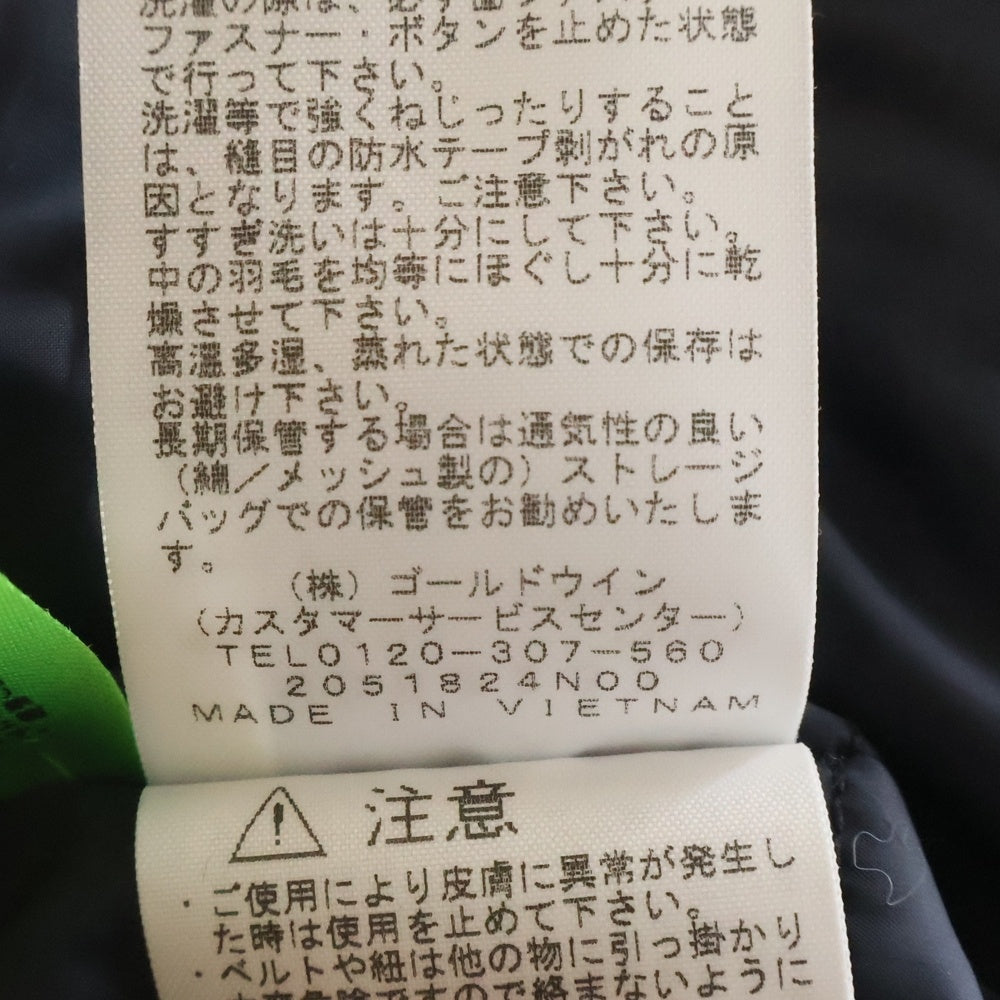 洗濯の際は、必ず
ファスナー・ボタンを止めた状態
で行って下さい。
洗濯等で強くねじったりすること
は、縫目の防水テープ剥がれの原
因となります。ご注意下さい。
すすぎ洗いは十分にして下さい。
中の羽毛を均等にほぐし十分に乾
燥させて下さい。
高温多湿、蒸れた状態での保存は
お避け下さい。
長期保管する場合は通気性の良い
（綿／メッシュ製の）ストレージ
バッグでの保管をお勧めいたしま
す。
（株）ゴールドウイン
（カスタマーサービスセンター）
TEL0120-307-560
2051824N00
MADE IN VIETNAM
注意
・ご使用により皮膚に異常が発生し
た時は使用を止めて下さい。
・ベルトや紐は他の物に引っ掛かり
ますので絡まないように